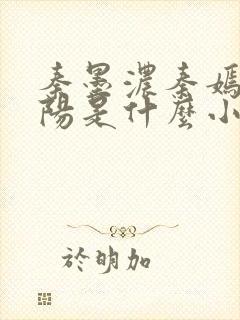 秦墨濃秦嫣
陽是什麼小
於明加